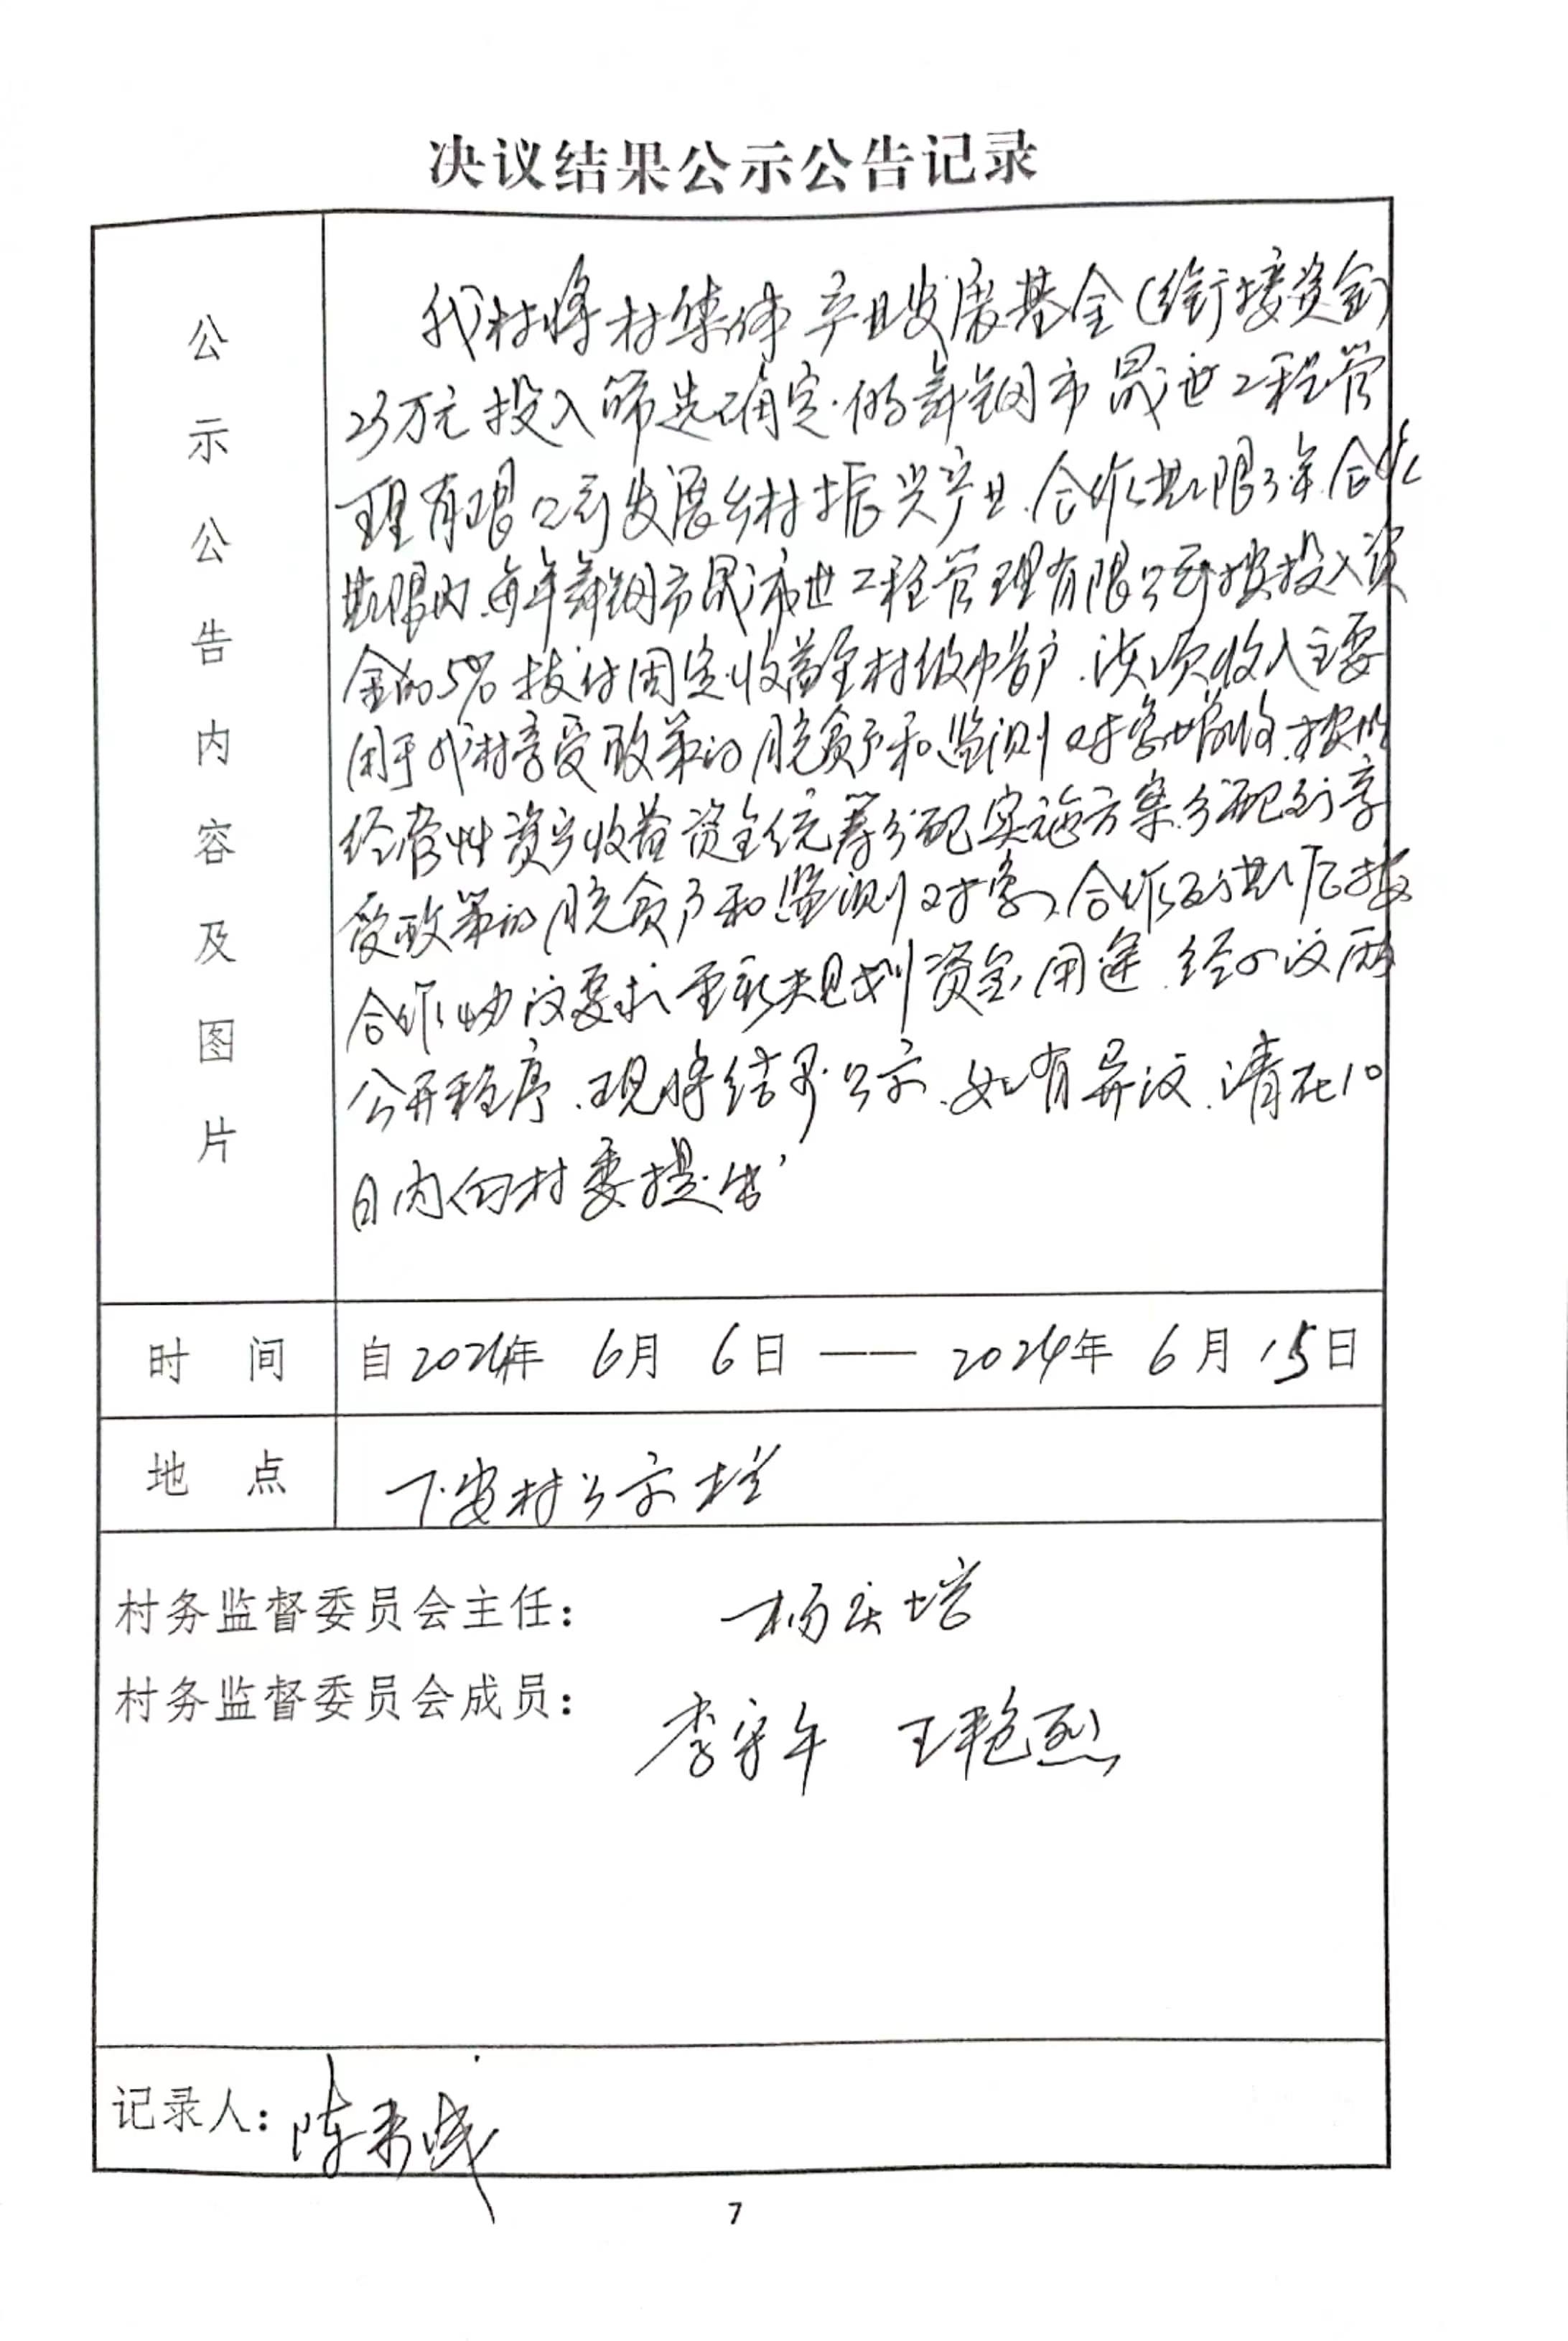 决议结果公示公告记录
公示公告内容及图片
我村将村集体产业发展基金(衔接资金)
23万元投入筛选确定的舞钢市晟世工程管
理有限公司发展乡村振兴产业.合作期限3年.合作
期限内.每年舞钢市晟世工程管理有限公司按投入资
金的5%拨付固定收益至村级账户.该项收入主要
用于我村享受政策的脱贫户和监测对象增收.按照
经营性资产收益资金统筹分配实施方案分配到享
受政策的脱贫户和监测对象、合作到期后按
合作协议要求重新规划资金用途.经四议两
公开程序.现将结果公示.如有异议.请在10
日内向村委提出
时 间
自2024年 6月 6日——2024年 6月 15日
地 点
下安村公示栏
村务监督委员会主任:
杨
村务监督委员会成员:
李守午 王艳烈
记录人:陈
7